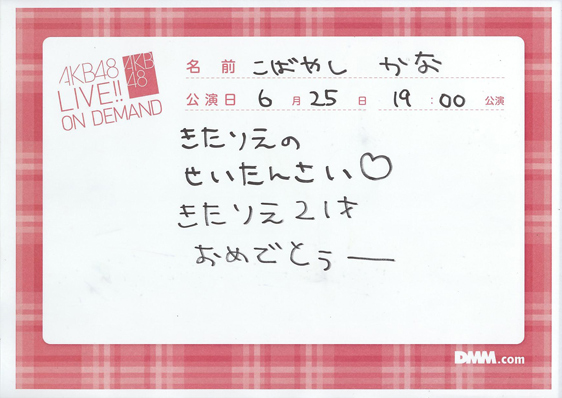 AKB48
LIVE!!
ON DEMAND
AKB
48
名 前 こばやし かな
公演日 6月25日 19:00 公演
きたりえの
せいたんさい♡
きたりえ21才
おめでとぅー
DMM.com